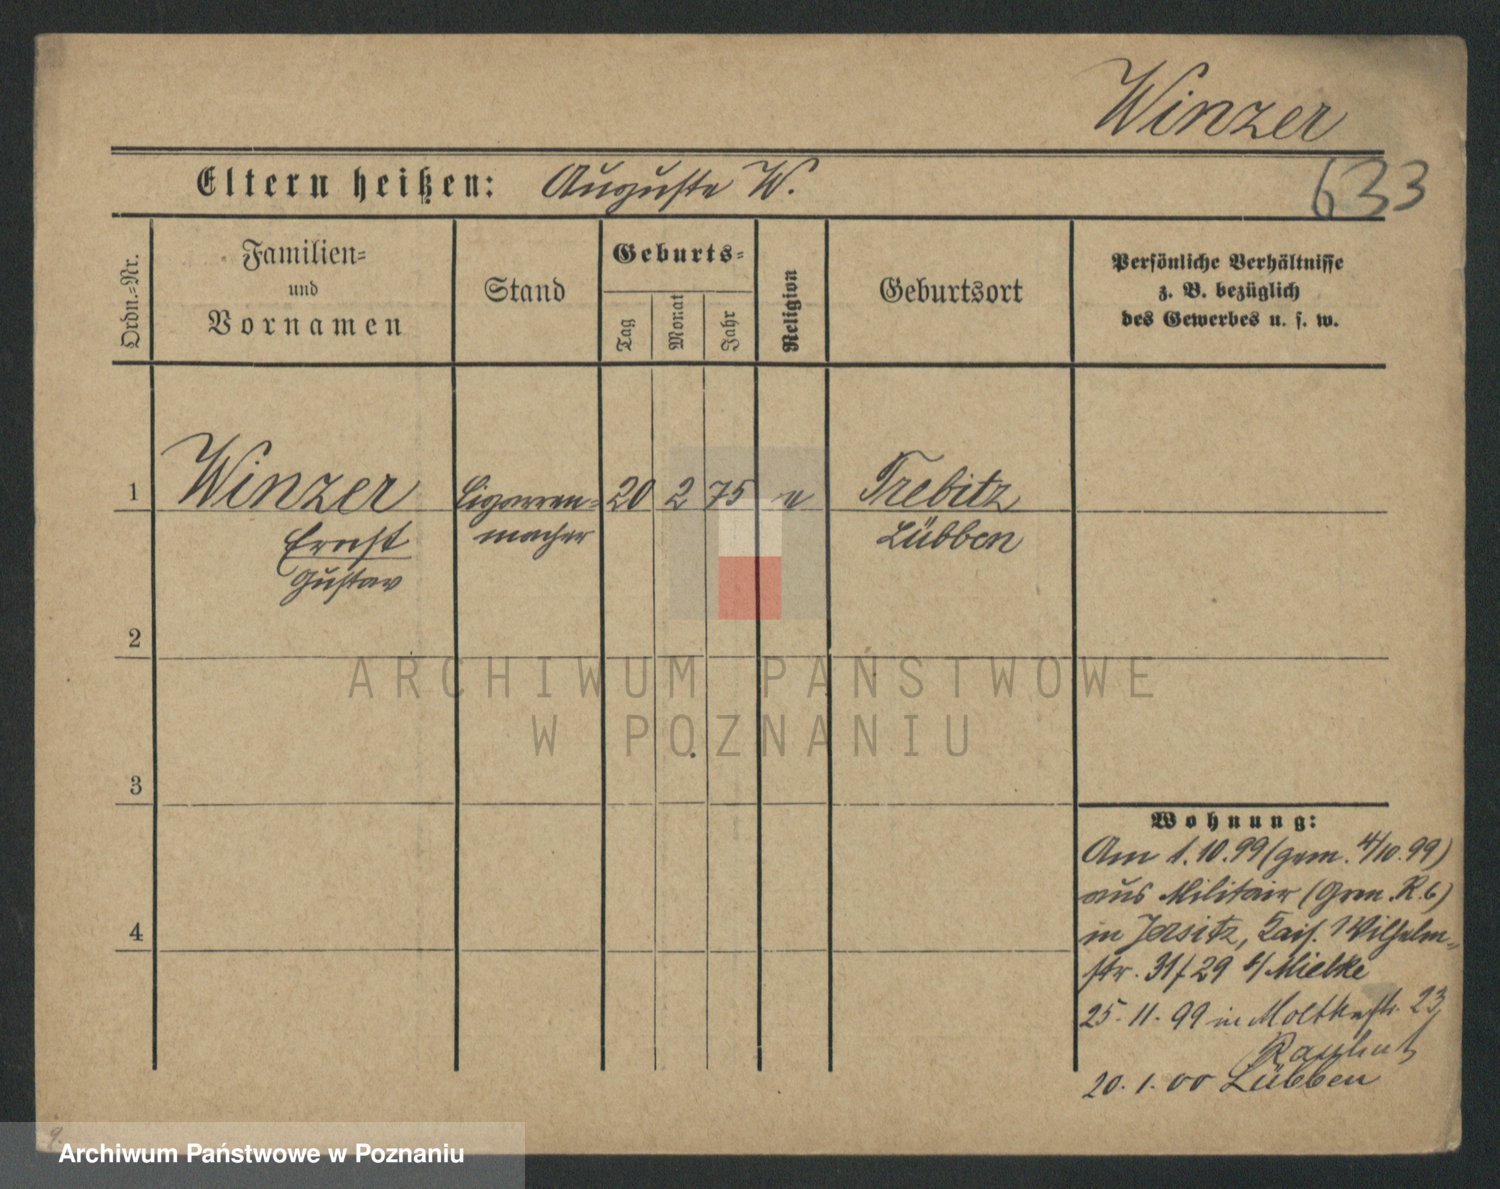 Winzer
Eltern heißen: Auguste W.
633
Ordn.=Nr.
Familien=
und
Vornamen
Stand
Geburts=
Tag
Monat
Jahr
Religion
Geburtsort
Persönliche Verhältnisse
z. B. bezüglich
des Gewerbes u. s. w.
1 Winzer Cigarren= 20 2 75 e Trebitz
Ernst macher Lübben
Gustav
2
3
4
Wohnung:
Am 1.10.99 (gem. 4/10.99)
aus Militair (Gren. R. 6)
in Jersitz, Kais. Wilhelm=
str. 31/29 b/ Mielke
25.11.99 in Moltkestr. 23
20.1.00 Lübben
ARCHIWUM PAŃSTWOWE
W POZNANIU
9.
Archiwum Państwowe w Poznaniu